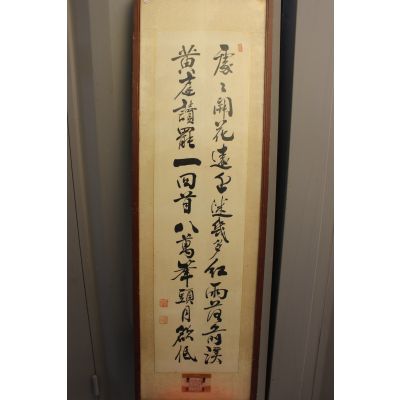 處々開花遠迷幾多紅雨落前溪
黄庭讀罷一回首八萬峯頭月欲低